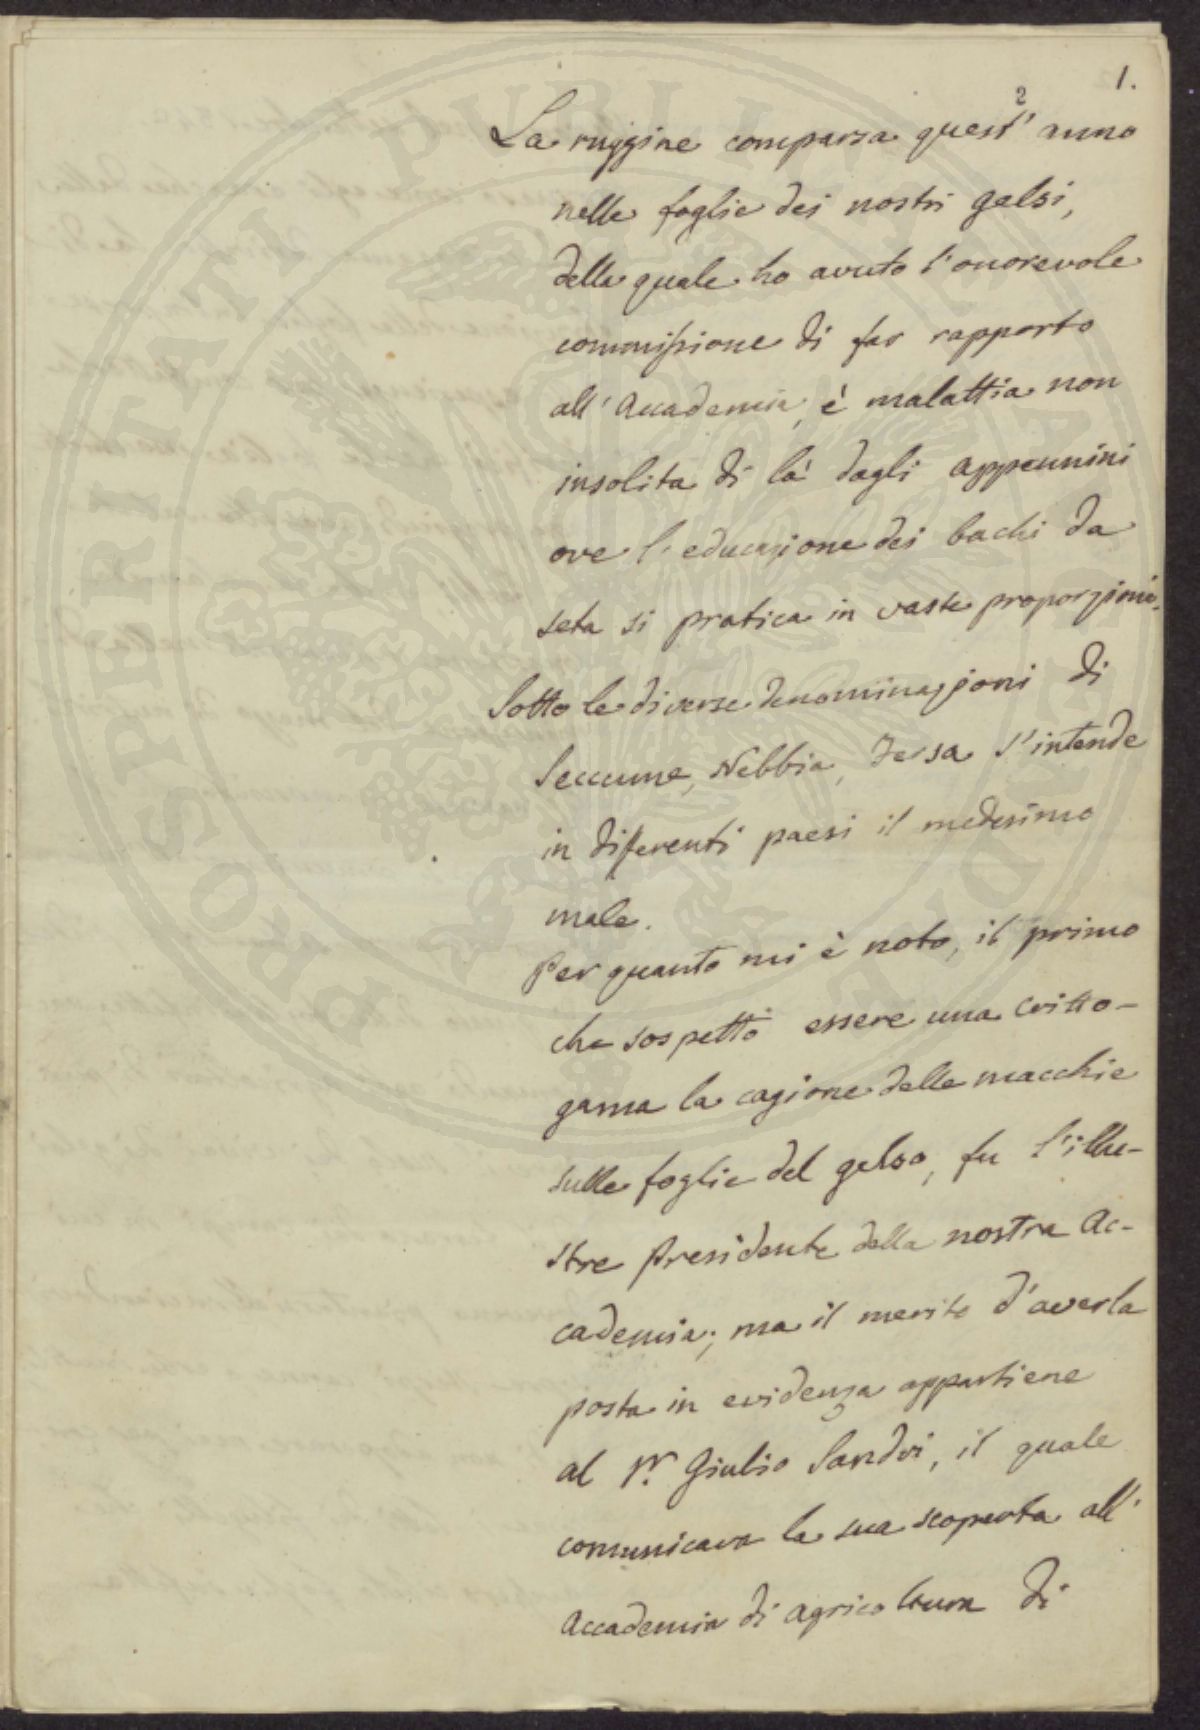 1.
2
La ruggine comparsa quest' anno
nelle foglie dei nostri gelsi,
della quale ho avuto l'onorevole
commissione di far rapporto
all' Accademia, è malattia non
insolita di là dagli appennini
ove l'educazione dei bachi da
seta si pratica in vaste proporzioni.
Sotto le diverse denominazioni di
Seccume, Nebbia, Fersa s'intende
in differenti paesi il medesimo
male.
Per quanto mi è noto, il primo
che sospettò essere una critto-
gama la cagione delle macchie
sulle foglie del gelso, fu l'illu-
stre Presidente della nostra Ac-
cademia; ma il merito d'averla
posta in evidenza appartiene
al Sr. Giulio Sandri, il quale
comunicava la sua scoperta all'
Accademia di agricoltura di
PROSPERITATI PUBLICAE AUGENDAE